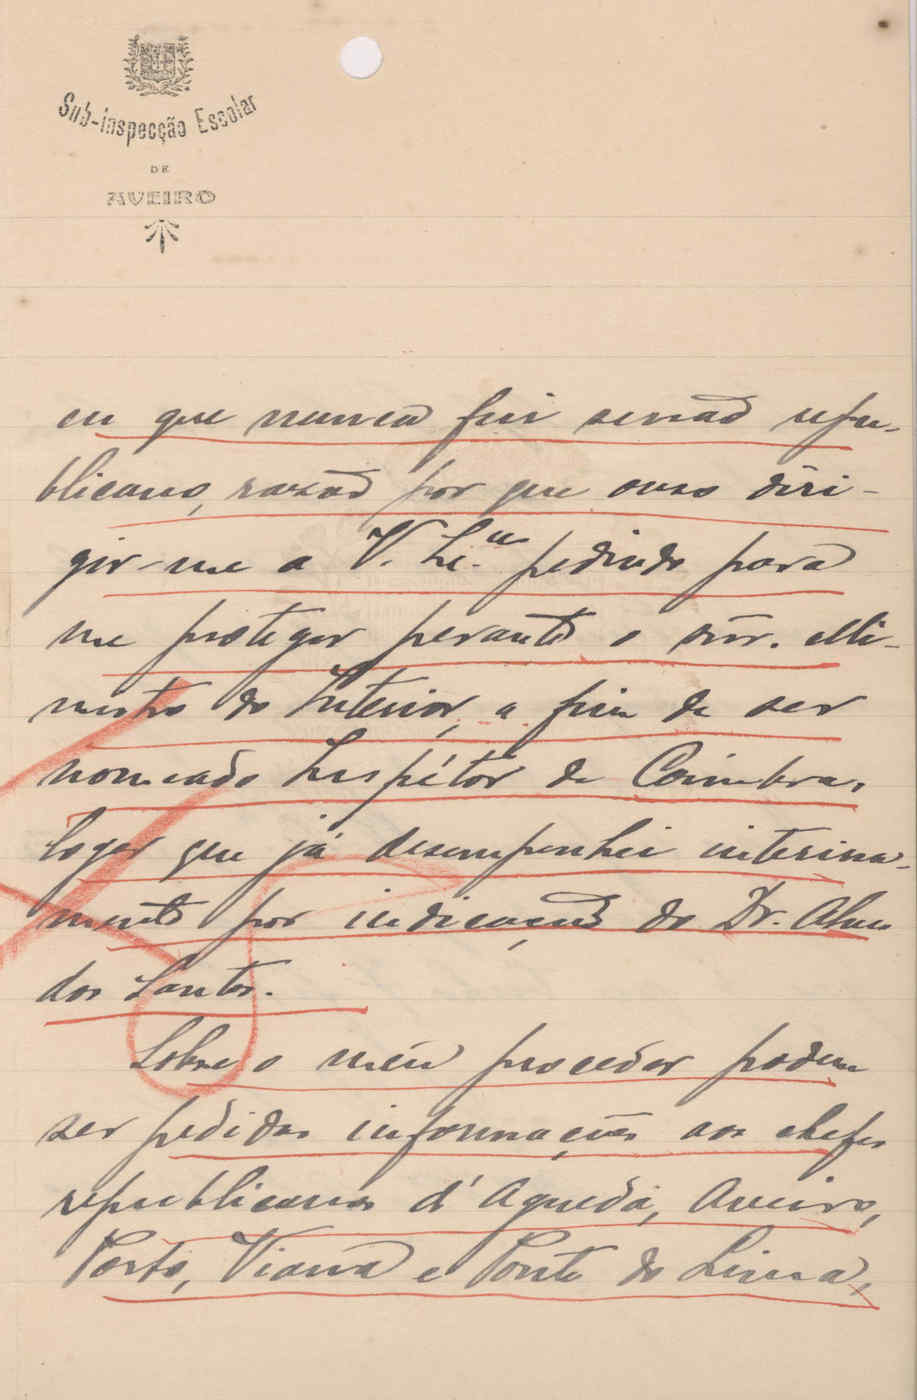 Sub-inspecção Escolar
DE
AVEIRO
eu que nunca fui senão repu-
blicano, razão por que ouso diri-
gir-me a V. Ex.cia pedindo para
me proteger perante o snr. Mi-
nistro do Interior, a fim de ser
nomeado Inspétor de Coimbra,
logar que já desempenhei interina-
mente por indicação do Dr. Alves
dos Santos.
Sobre o meu proceder podem
ser pedidas informações aos chefes
republicanos d'Agueda, Aveiro,
Porto, Viana e Ponte do Lima,